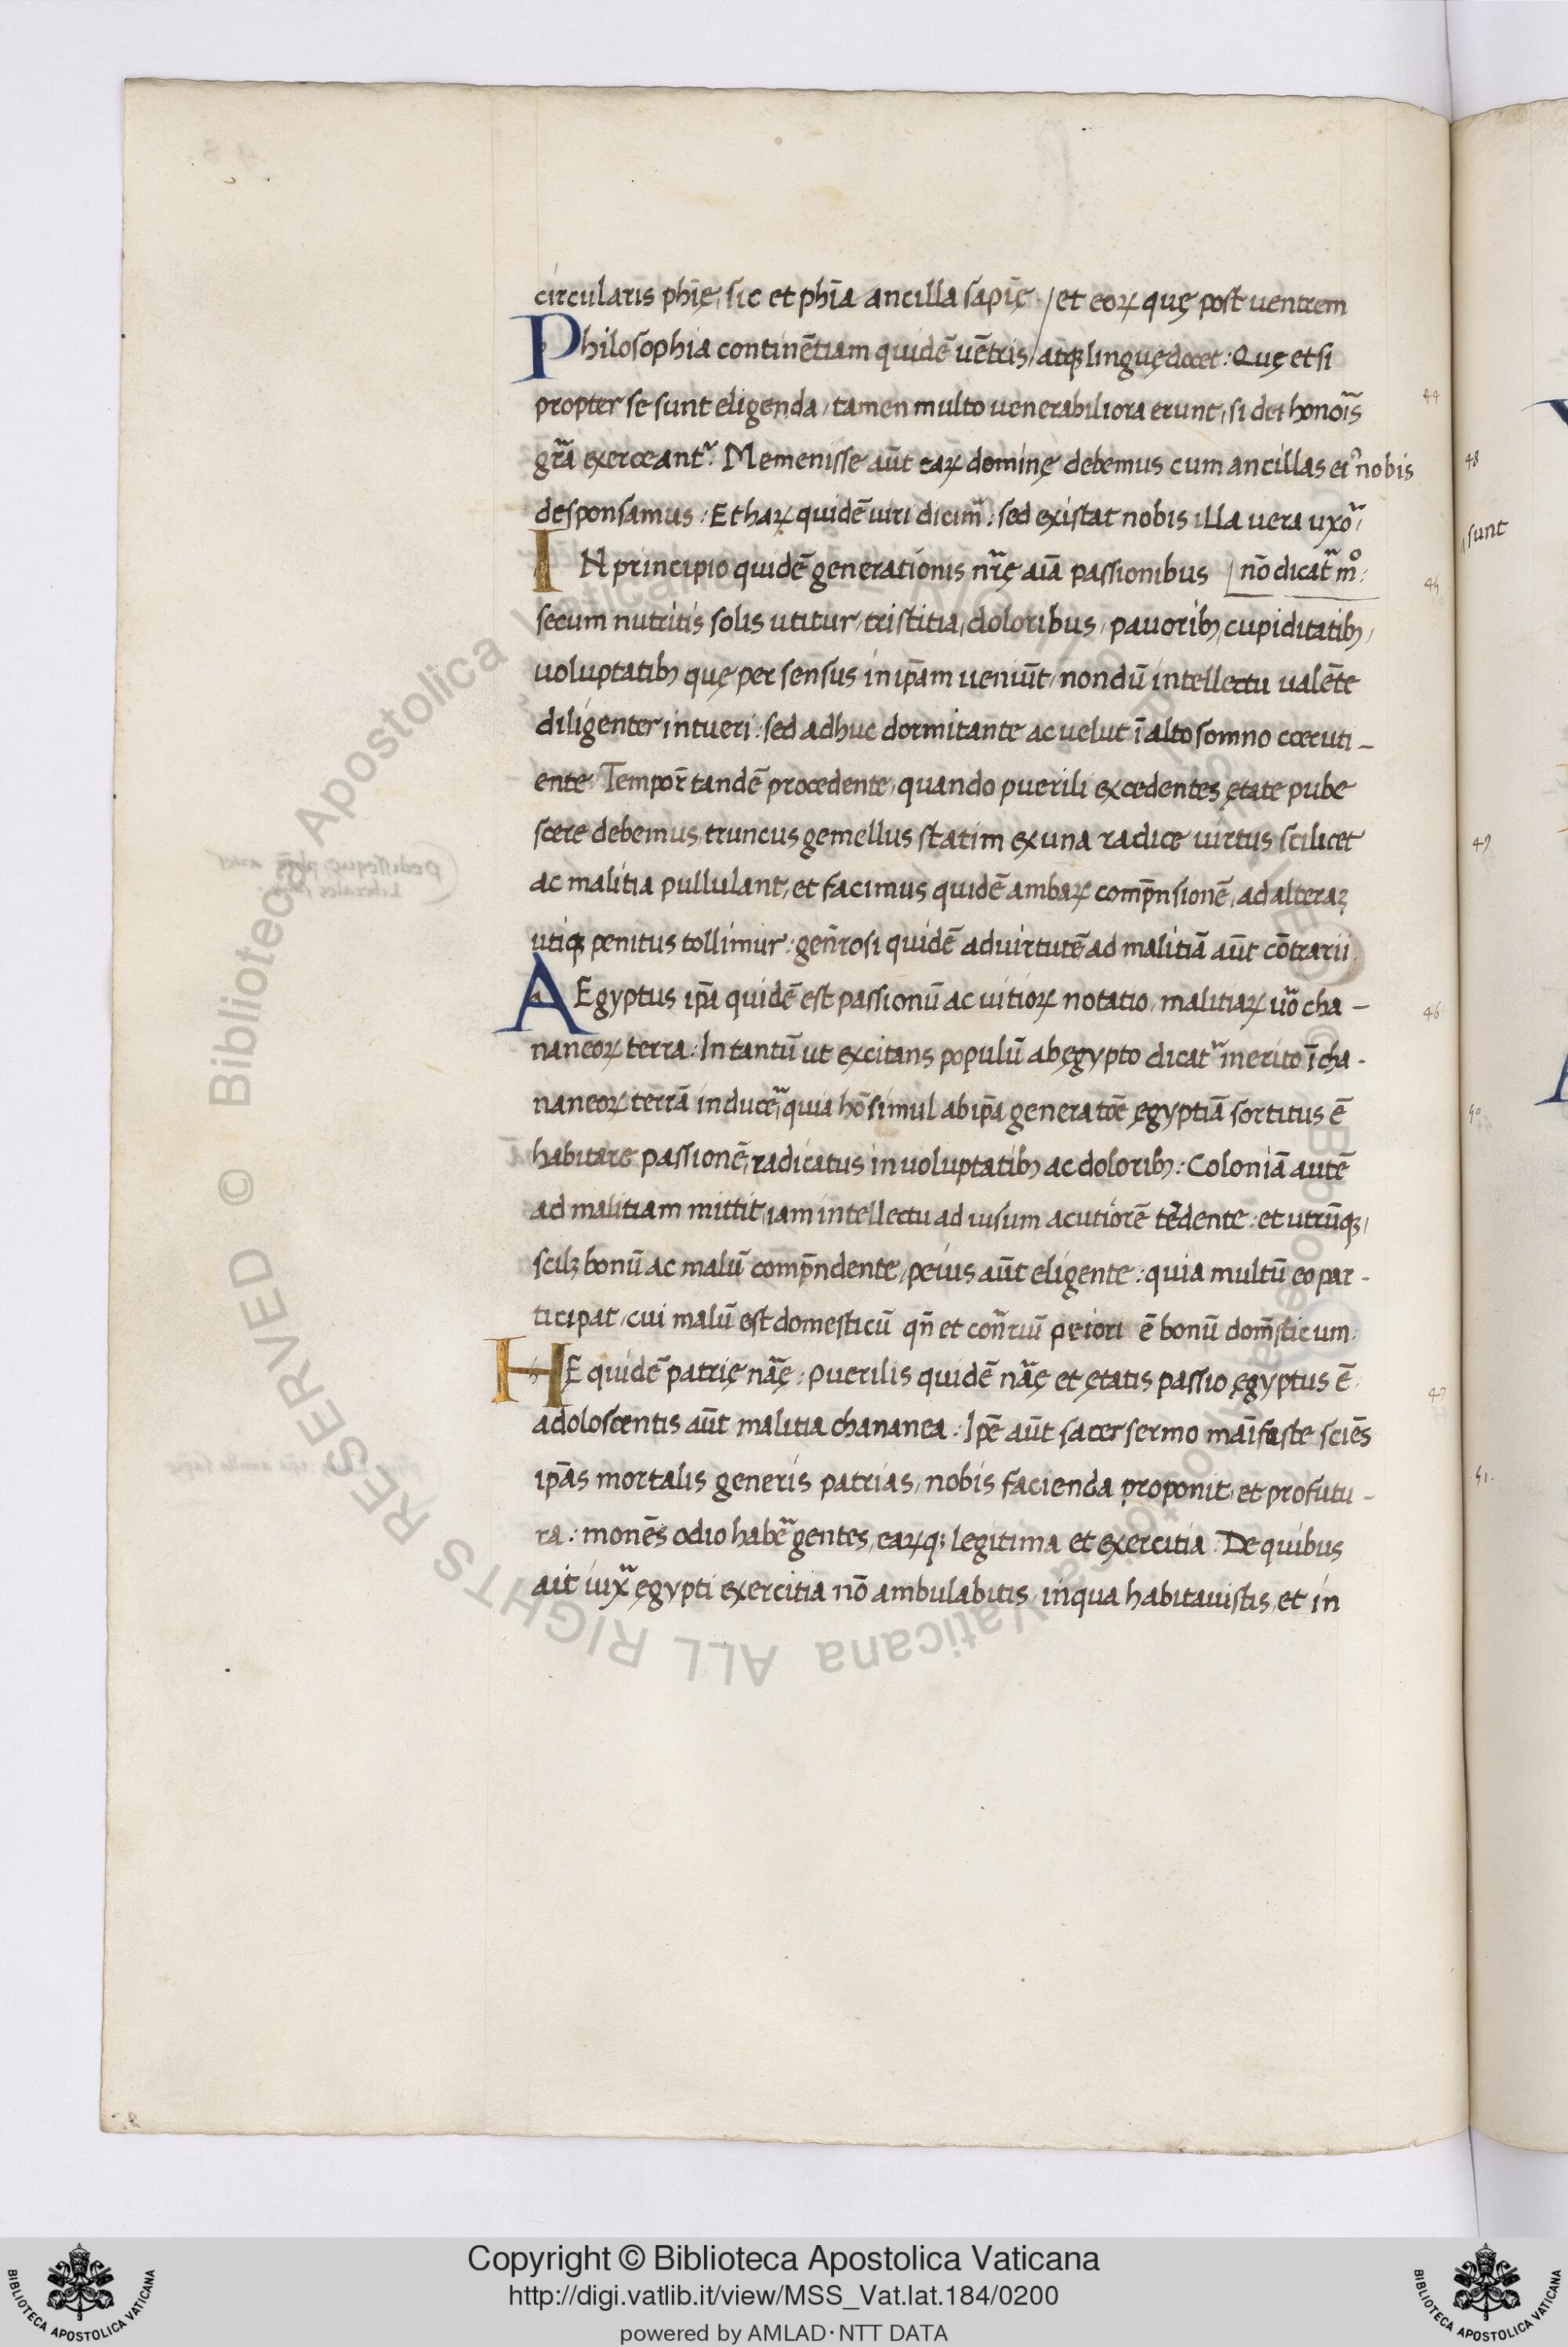 circularis phię, sic et phīa ancilla sapię / et eoꝝ quę post uentrem
Philosophia continētiam quidē uētris / atqꝫ linguę docet: Quę et si
propter se sunt eligenda, tamen multo uenerabiliora erunt, si dei honoīs
44
gr̄a exerceantᷣ. Memenisse aūt eaꝝ dominę debemus cum ancillas eiꝰ nobis
desponsamus: Et haꝝ quidē uiri dicimᷣ: sed existat nobis illa uera uxoᷣ,
IN principio quidē generationis nr̄ę aīa passionibus nō dicatᷣ mº:
45
secum nutritis solis utitur, tristitia, doloribus, pauoribꝫ, cupiditatibꝫ,
uoluptatibꝫ quę per sensus in ip̄am ueniūt, nondū intellectu ualēte
diligenter intueri: sed adhuc dormitante ac uelut ī alto somno cceruti-
ente Tempor̄ tandē procedente, quando puerili excedentes ętate pube
scere debemus, truncus gemellus statim ex una radice uirtus scilicet
ac malitia pullulant, et facimus quidē ambaꝝ comp̄nsionē, ad alteraꝫ
utiqꝫ penitus tollimur: gen̄rosi quidē ad uirtutē ad malitiā aūt cōtrarii
AEgyptus ip̄a quidē est passionū ac uitioꝝ notatio, malitiaꝝ uº cha-
46
naneoꝝ terra: In tantū ut excitans populū ab ęgypto dicatᷣ merito ī cha-
naneoꝝ terrā induceᷣ, quia hō simul ab ip̄a generatōe ęgyptiā sortitus ē
habitare passionē, radicatus in uoluptatibꝫ ac doloribꝫ: Coloniā autē
ad malitiam mittit, iam intellectu ad uisum acutiorē tēdente: et utrūqꝫ,
scilꝫ bonū ac malū comp̄ndente, peius aūt eligente: quia multū eo par-
ticipat, cui malū est domesticū qn̄ et conr̄riū peiori ē bonū dom̄sticum:
HE quidē patrię nāę: Puerilis quidē nāę et ętatis passio ęgyptus ē:
47
adoloscentis aūt malitia chananea. Ip̄e aūt sacer sermo māifeste sciēs
ip̄as mortalis generis patrias, nobis facienda proponit, et profutu-
ra: monēs odio habeᷣ gentes, eaꝝqꝫ legitima et exercitia: De quibus
ait iuxᷓ ęgypti exercitia nō ambulabitis, in qua habitauistis, et in
48
sunt
49
50
51.
Copyright © Biblioteca Apostolica Vaticana
http://digi.vatlib.it/view/MSS_Vat.lat.184/0200
powered by AMLAD·NTT DATA
BIBLIOTECA APOSTOLICA VATICANA
BIBLIOTECA APOSTOLICA VATICANA
© Biblioteca Apostolica Vaticana ALL RIGHTS RESERVED